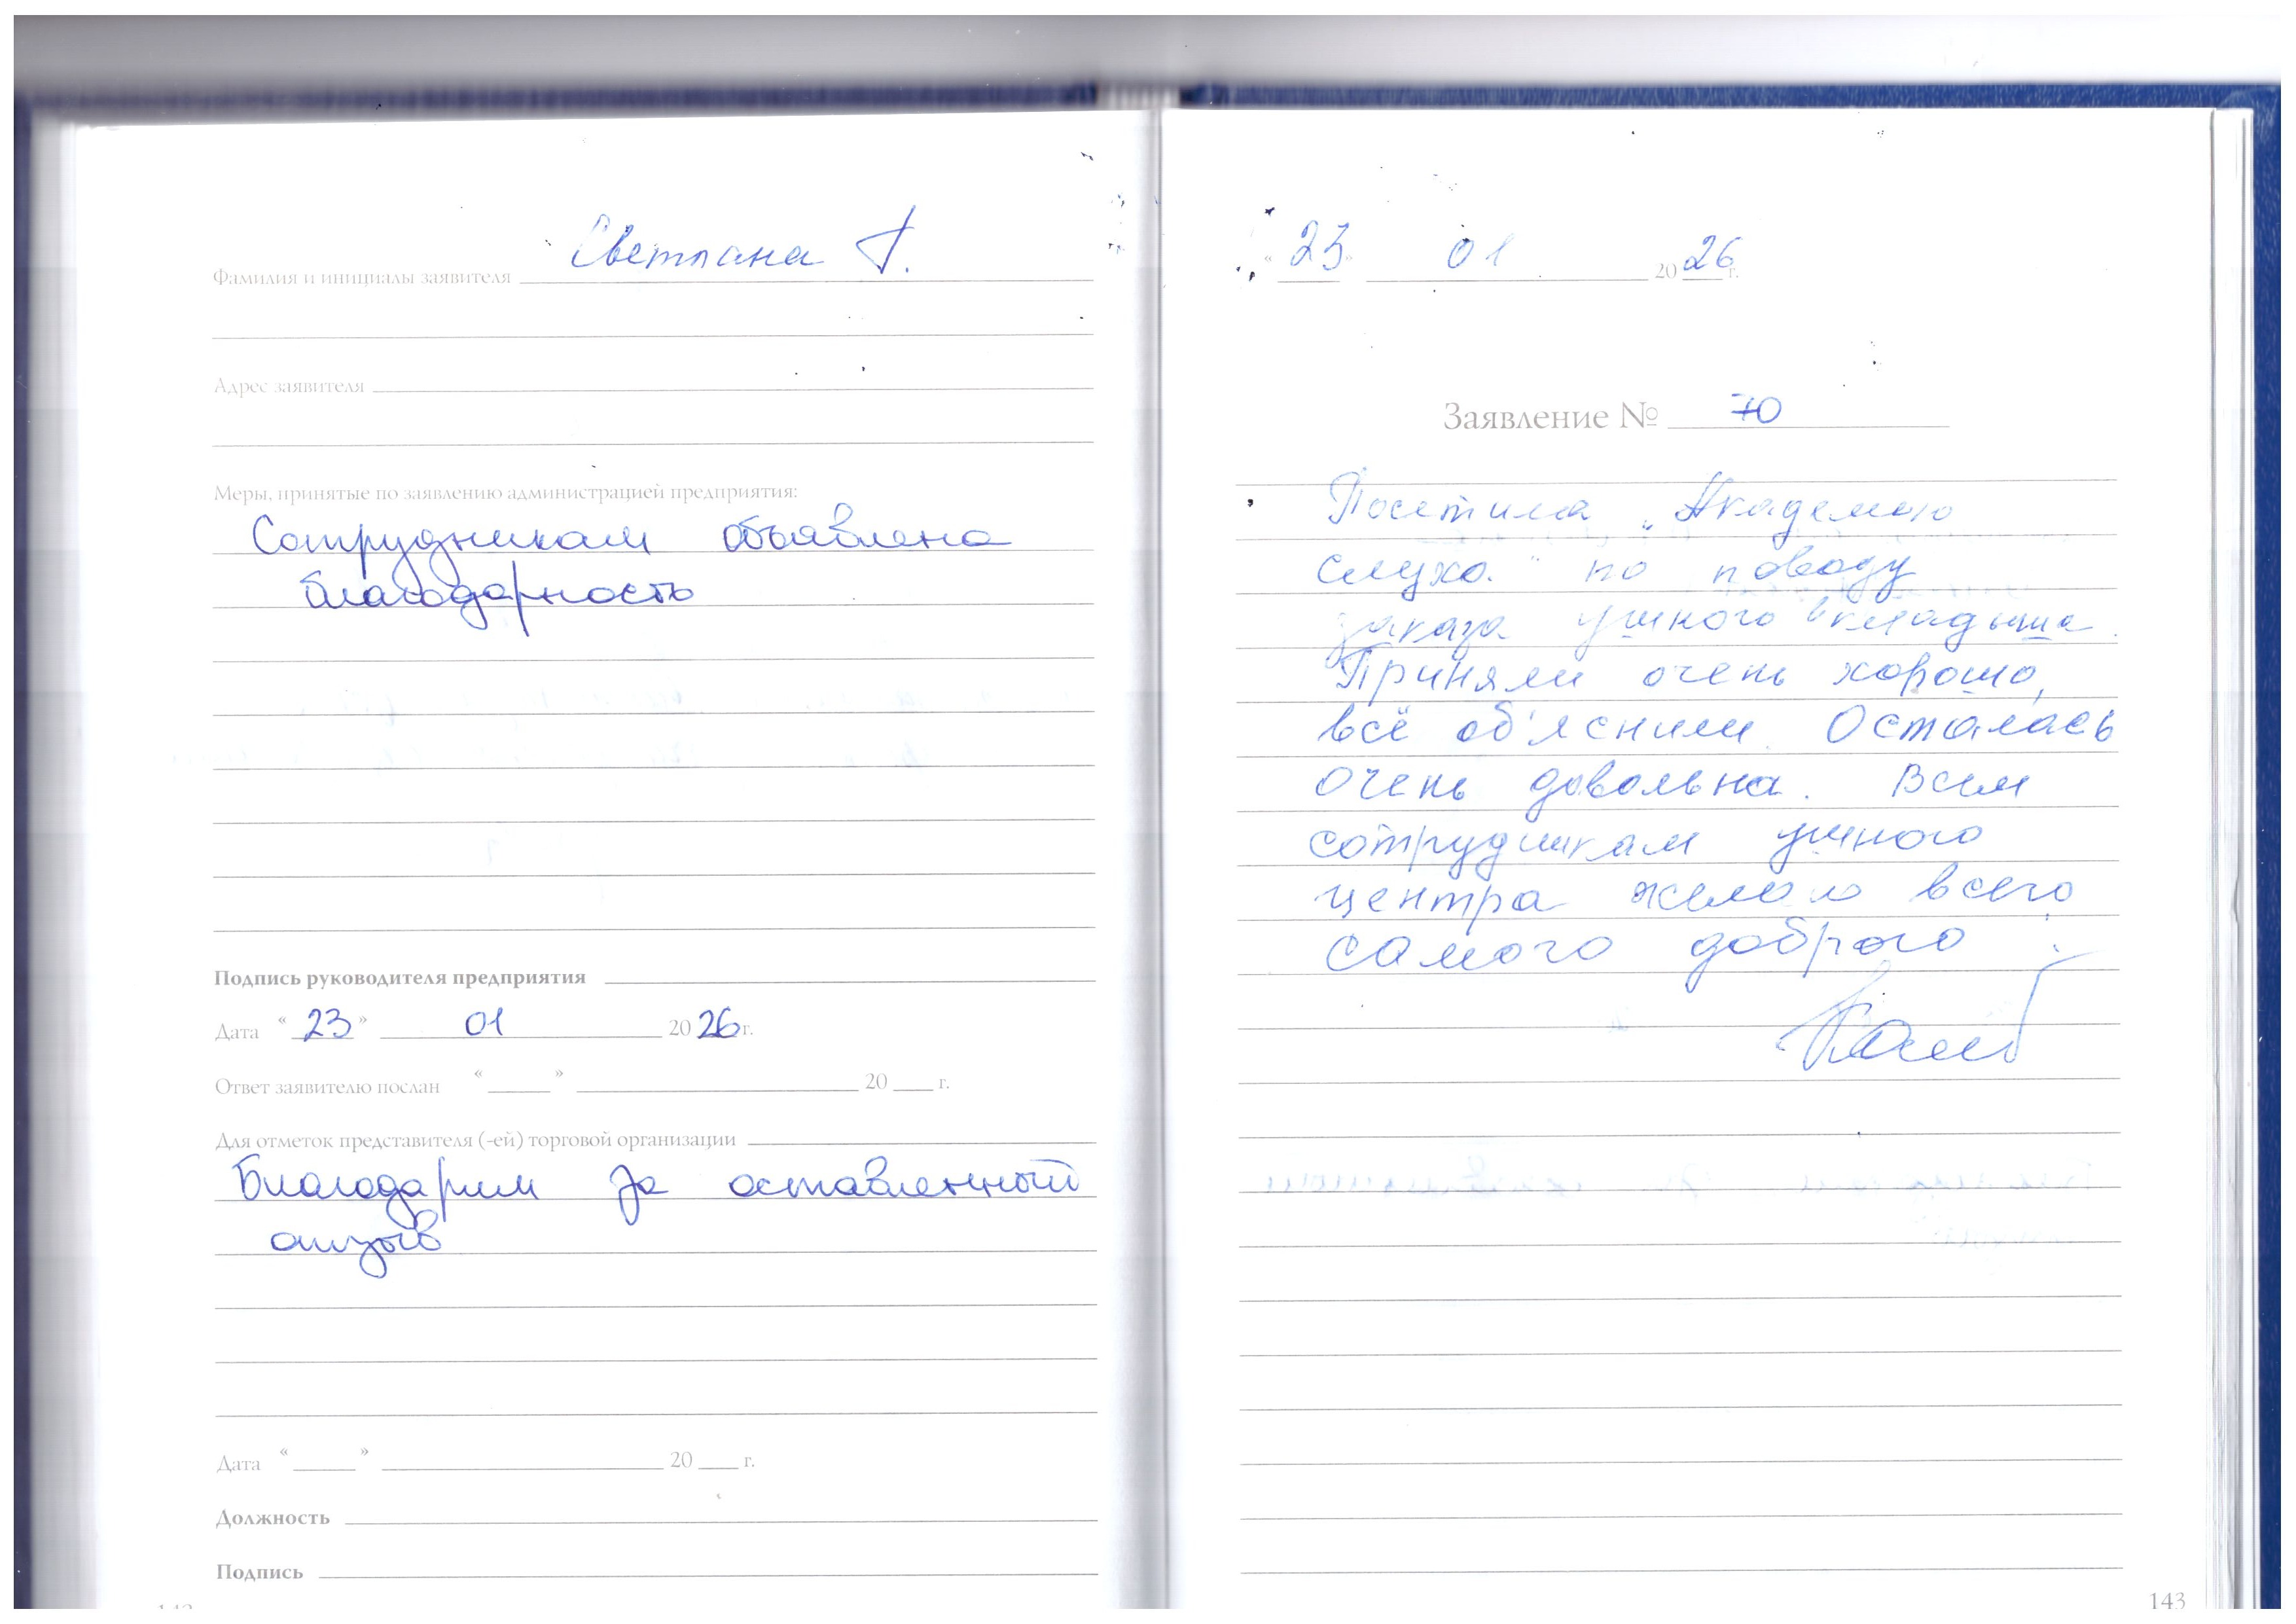 Фамилия и инициалы заявителя Светлана Г.
Адрес заявителя
Меры, принятые по заявлению администрацией предприятия:
Сотрудникам объявлена
благодарность
Подпись руководителя предприятия
Дата « 23 » 01 20 26 г.
Ответ заявителю послан « » 20 г.
Для отметок представителя (-ей) торговой организации
Благодарим за оставленный
отзыв
Дата « » 20 г.
Должность
Подпись
« 23 » 01 20 26 г.
Заявление № 70
Посетила „Академию
слуха" по поводу
заказа ушного вкладыша.
Приняли очень хорошо,
всё об'яснили. Осталась
очень довольна. Всем
сотрудникам ушного
центра желаю всего
самого доброго!
143